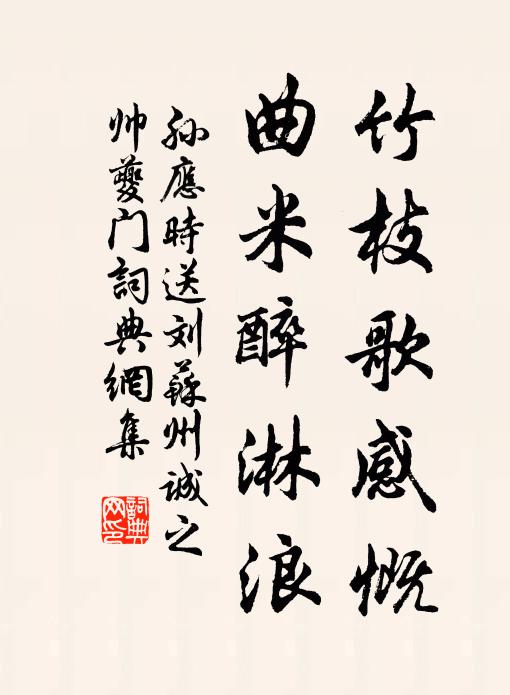 竹枝歌感慨
曲米醉淋浪
孙應時送刘蘇州诚之
帅夔门詞典網集
詞典網印